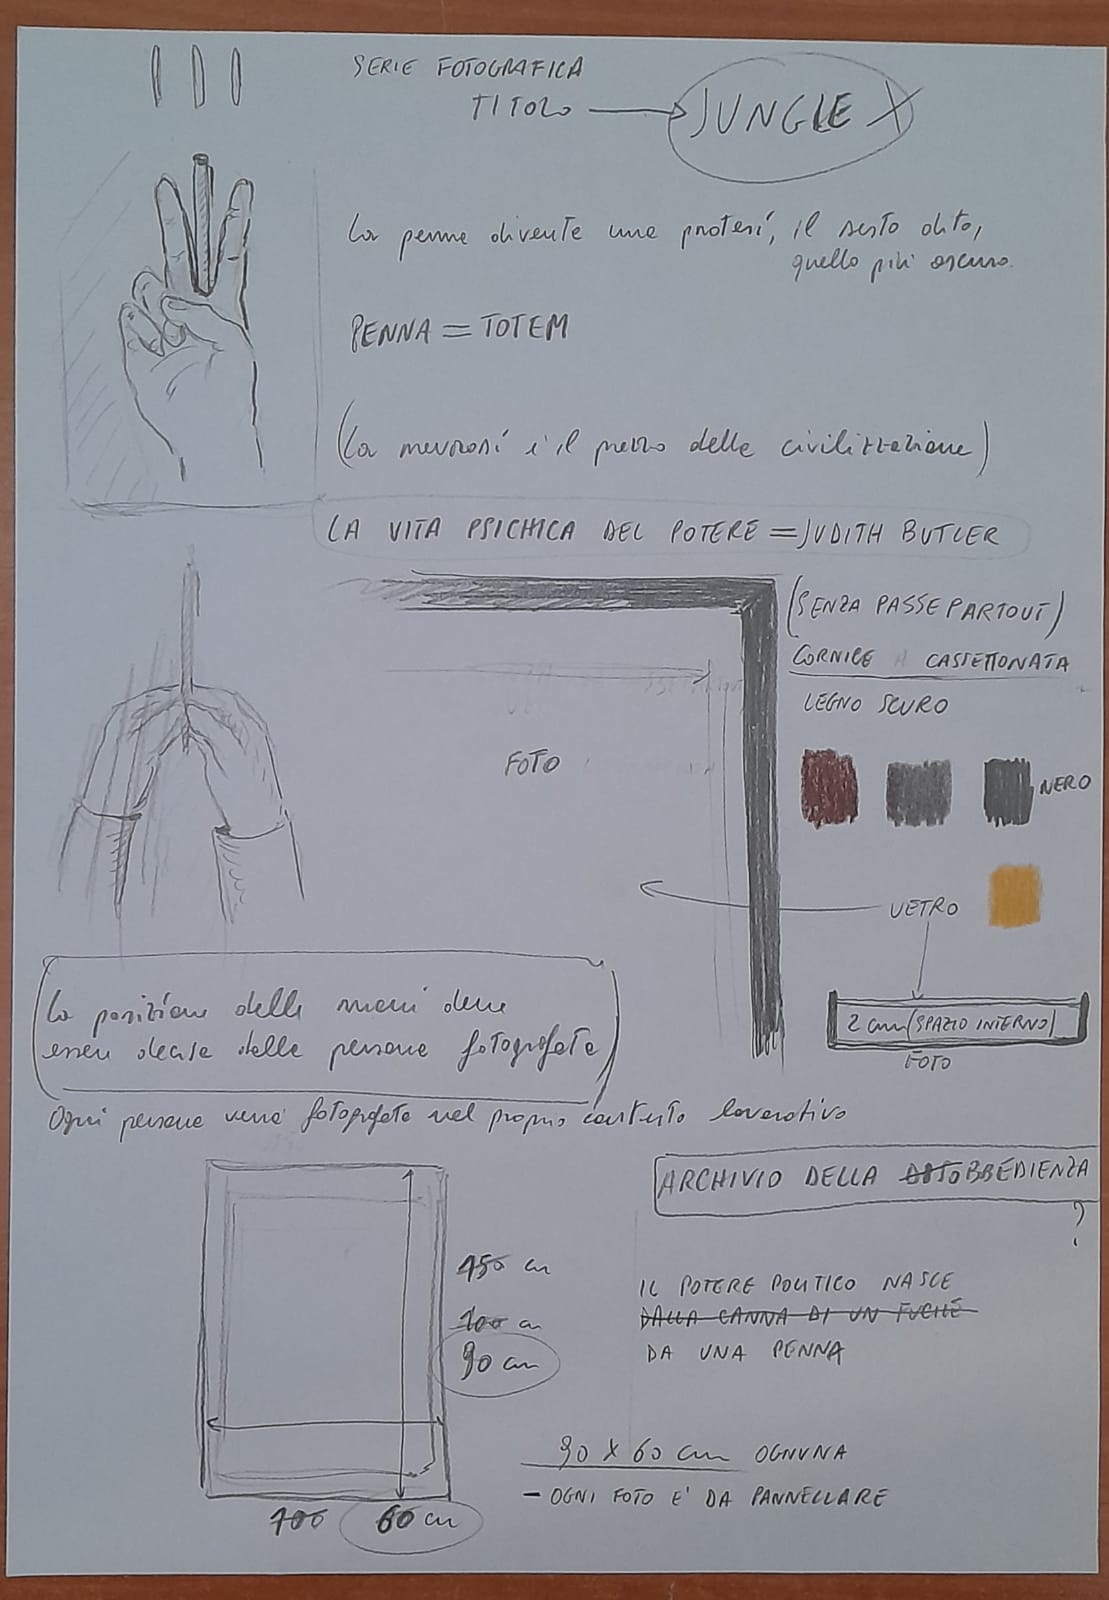 SERIE FOTOGRAFICA
TITOLO
JUNGLE X
La penna diventa una protesi, il sesto dito,
quello più oscuro.
PENNA = TOTEM
(La nevrosi è il prezzo della civilizzazione)
LA VITA PSICHICA DEL POTERE = JUDITH BUTLER
(SENZA PASSEPARTOUT)
CORNICE A CASSETTONATA
LEGNO SCURO
FOTO
NERO
VETRO
2 cm (SPAZIO INTERNO)
FOTO
La posizione delle mani deve
essere decisa dalle persone fotografate
Ogni persona verrà fotografata nel proprio contesto lavorativo
ARCHIVIO DELLA OBBEDIENZA
?
150 cm
100 cm
90 cm
IL POTERE POLITICO NASCE
DALLA CANNA DI UN FUCILE
DA UNA PENNA
90 X 60 cm OGNUNA
- OGNI FOTO E' DA PANNELLARE
100 60 cm